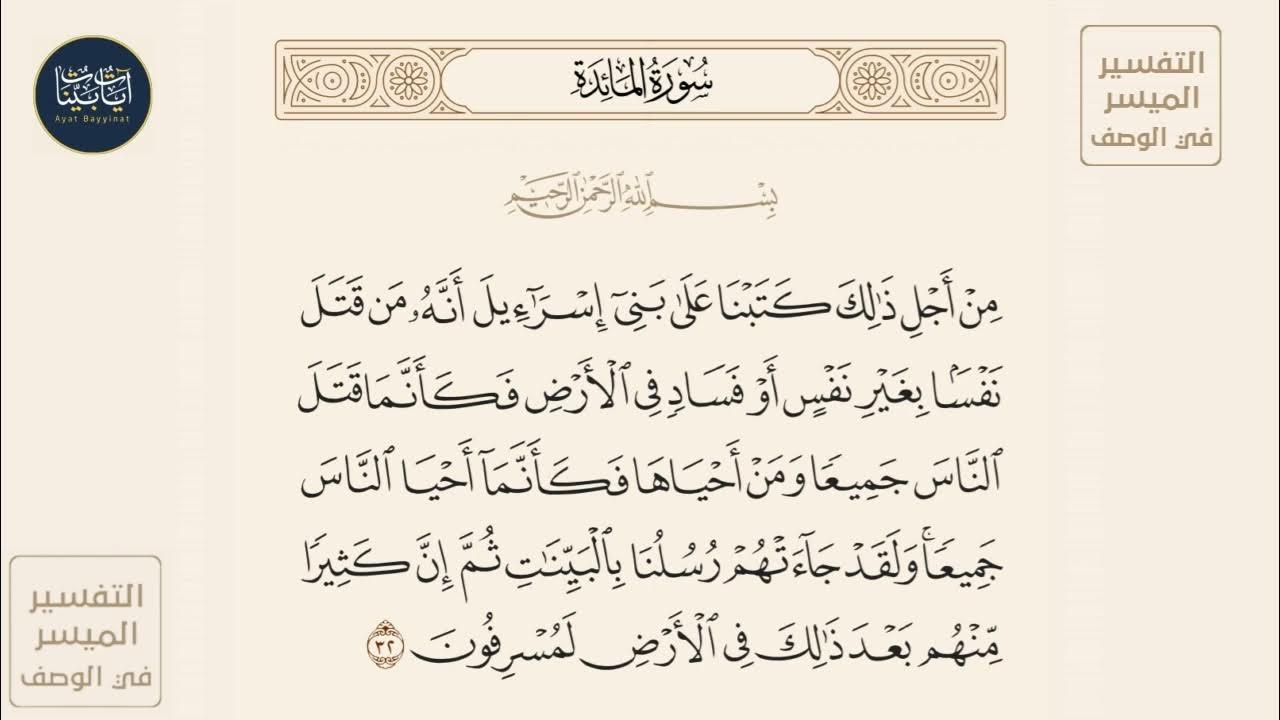 آيات بينات
Ayat Bayyinat
سُورَةُ المَائِدَةِ
التفسير
الميسر
في الوصف
بِسْمِ ٱللَّهِ ٱلرَّحْمَٰنِ ٱلرَّحِيمِ
مِنْ أَجْلِ ذَٰلِكَ كَتَبْنَا عَلَىٰ بَنِىٓ إِسْرَٰٓءِيلَ أَنَّهُۥ مَن قَتَلَ
نَفْسًۢا بِغَيْرِ نَفْسٍ أَوْ فَسَادٍ فِى ٱلْأَرْضِ فَكَأَنَّمَا قَتَلَ
ٱلنَّاسَ جَمِيعًا وَمَنْ أَحْيَاهَا فَكَأَنَّمَآ أَحْيَا ٱلنَّاسَ
جَمِيعًاۚ وَلَقَدْ جَآءَتْهُمْ رُسُلُنَا بِٱلْبَيِّنَٰتِ ثُمَّ إِنَّ كَثِيرًا
مِّنْهُم بَعْدَ ذَٰلِكَ فِى ٱلْأَرْضِ لَمُسْرِفُونَ ٣٢
التفسير
الميسر
في الوصف